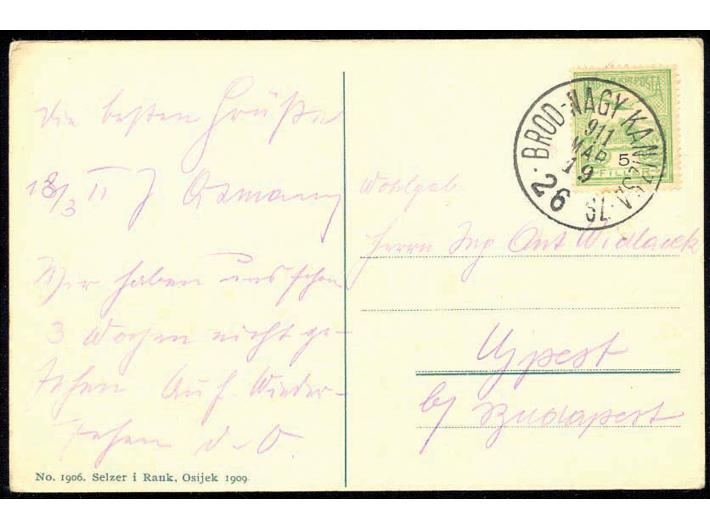 die besten Grüße
18/3 11 J Osmany
Wir haben uns schon
3 Wochen nicht ge-
sehen Auf Wieder-
sehen d. O.
No. 1906. Selzer i Rank, Osijek 1909.
MAGYAR KIR. POSTA
5
FILLÉR
BROD-NAGY KANIZSA
911
MAR
19
26 SZ.
Wohlgeb.
Herrn Ing Ant Widlacek
Ujpest
b/ Budapest